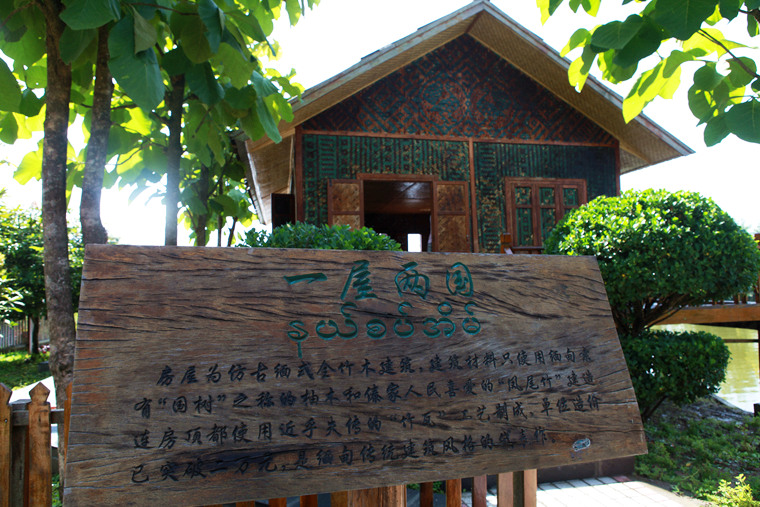 一屋两国
နယ်စပ်အိမ်
房屋为仿古缅式全竹木建筑，建筑材料只使用缅甸素
有“国树”之称的柚木和傣家人民喜爱的“凤尾竹”建造
连房顶都使用近乎失传的“竹瓦”工艺制成，单位造价
已突破二万元，是缅甸传统建筑风格的篇章作。